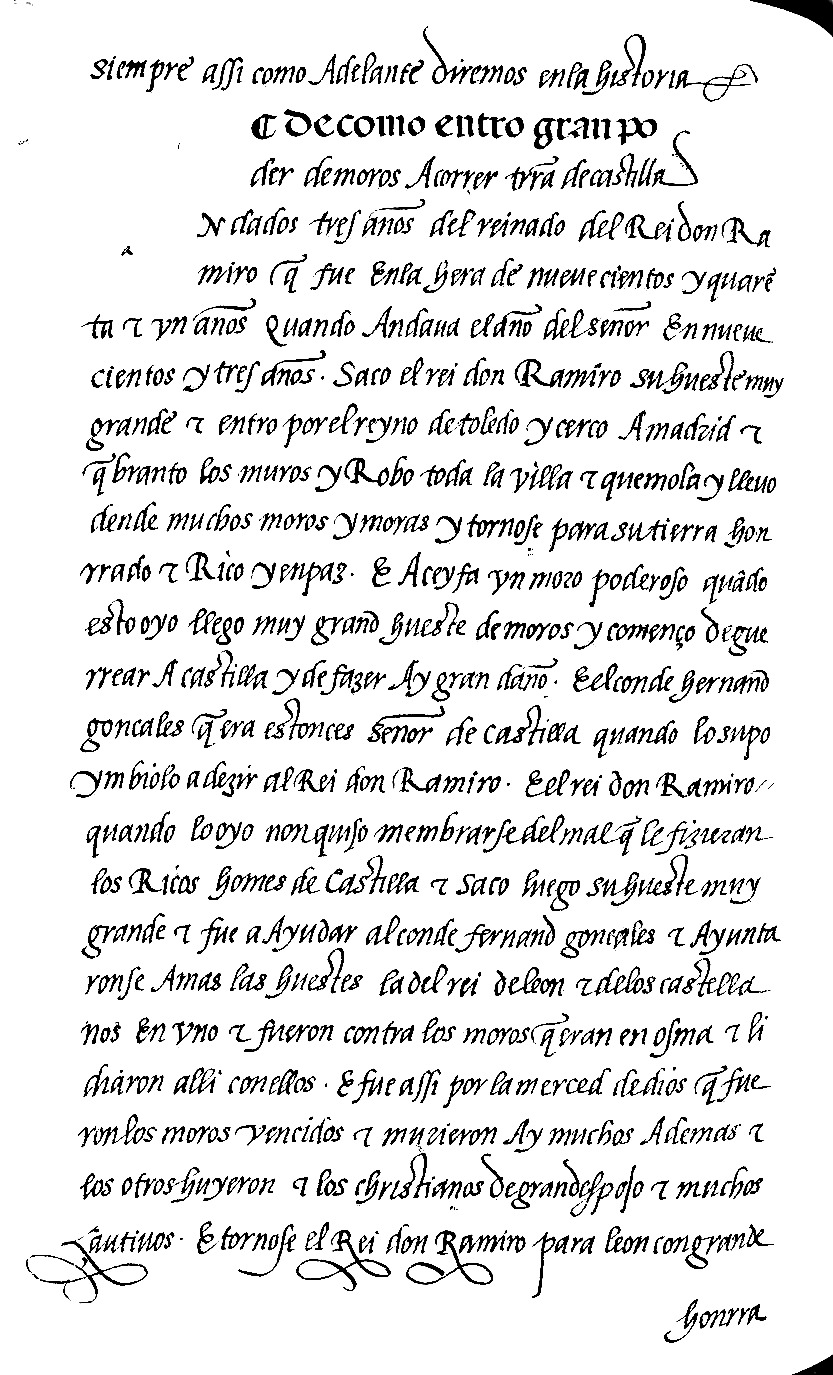 siempre assi como Adelante diremos enla historia
¶ De como entro gran po
der demoros Acorrer trr̃a decastilla
N dados tres años del reinado del Rei don Ra
miro q̃ fue Enla hera de nueuecientos y quarẽ
ta τ vn años Quando Andaua el año del señor En nueue
cientos y tres años. Saco el rei don Ramiro su hueste muy
grande τ entro por el reyno de toledo y cerco A madrid τ
q̃branto los muros y Robo toda la villa τ quemola y lleuo
dende muchos moros y moras y tornose para su tierra hon
rrado τ Rico y en paz. E Aceyfa vn moro poderoso quãdo
esto oyo llego muy grand hueste de moros y començo de gue
rrear A castilla y de fazer Ay gran daño. E el conde hernand
goncales q̃ era estonces señor de castilla quando lo supo
ymbiolo a dezir al Rei don Ramiro. E el rei don Ramiro//
quando lo oyo non quiso membrarse del mal q̃ le fizieran
los Ricos homes de Castilla τ saco luego su hueste muy
grande τ fue a Ayudar al conde fernand goncales τ Ayunta
ronse Amas las huestes la del rei de leon τ de los castella
nos En vno τ fueron contra los moros q̃ eran en osma τ li
diaron alli conellos. E fue assi por la merced de dios q̃ fue
ron los moros vencidos τ murieron Ay muchos Ademas τ
los otros huyeron τ los christianos de grand espojo τ muchos
cautiuos. E tornose el Rei don Ramiro para leon con grande
honrra